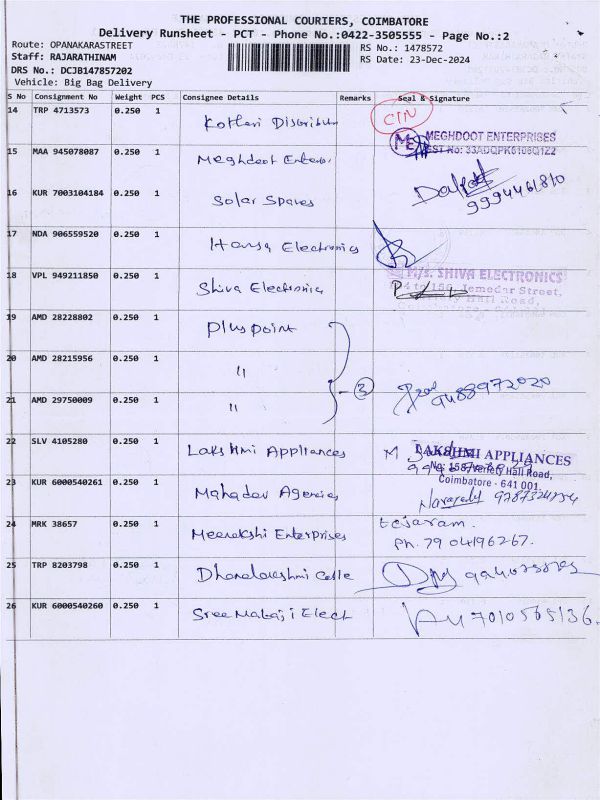 THE PROFESSIONAL COURIERS, COIMBATORE
Delivery Runsheet - PCT - Phone No.:0422-3505555 - Page No.:2
Route: OPANAKARASTREET
RS No.: 1478572
Staff: RAJARATHINAM
RS Date: 23-Dec-2024
DRS No.: DCJB147857202
Vehicle: Big Bag Delivery
S No Consignment No Weight PCS Consignee Details Remarks Seal & Signature
14 TRP 4713573 0.250 1 Kothari CTN
MEGHDOOT ENTERPRISES
15 MAA 945078087 0.250 1 Meghdoot
16 KUR 7003104184 0.250 1 Solar Spares
9994461810
17 NDA 906559520 0.250 1 Electronics
18 VPL 949211850 0.250 1 Shiva Electronics
M/s. SHIVA ELECTRONICS
Jemedar Street,
Variety Hall Road,
19 AMD 28228802 0.250 1 Pluspoint
20 AMD 28215956 0.250 1 "
3
21 AMD 29750009 0.250 1 "
9488972020
22 SLV 4105280 0.250 1 Lakshmi Appliances
LAKSHMI APPLIANCES
No: 158, Variety Hall Road,
Coimbatore - 641 001.
23 KUR 6000540261 0.250 1 Mahadav Agencies
24 MRK 38657 0.250 1 Meenakshi Enterprises tejaram.
Ph. 79 04196267.
25 TRP 8203798 0.250 1
26 KUR 6000540260 0.250 1 Sree Mataji Elect 7010565136